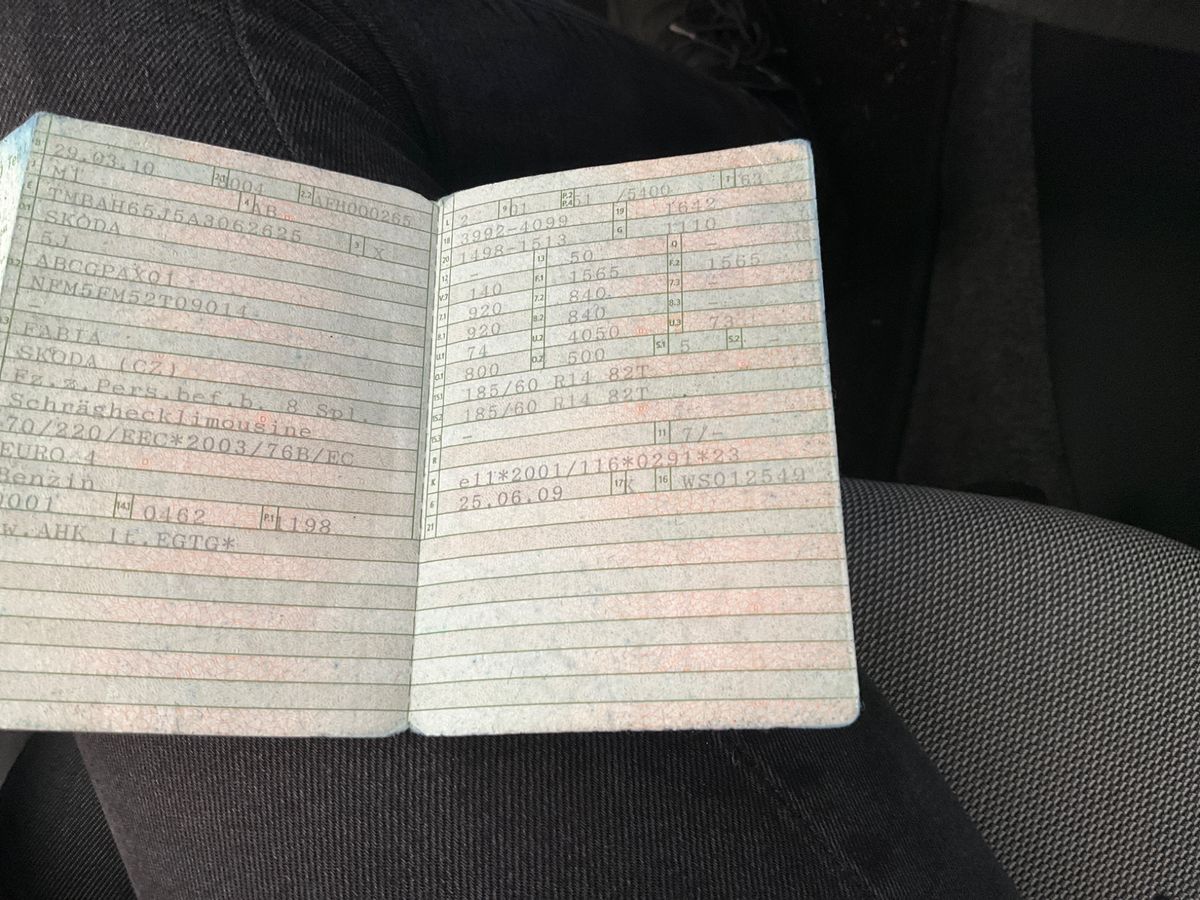 B 29.03.10 2.1 8004 2.2 AFH000265
J M1 4 AB
E TMBAH65J5A3062625 3 X
SKODA
5J
ABCGPAX01
NFM5FM52T09014
-
FABIA
SKODA (CZ)
Fz.z.Pers.bef.b. 8 Spl
Schräghecklimousine
70/220/EEC*2003/76B/EC
EURO 4
Benzin
0001 14.1 0462 P.1 1198
w.AHK lt.EGTG*
L 2 9 01 P.2 P.4 51 /5400 T 163
18 3992-4099 19 1642
20 1498-1513 G 1110
12 - 13 50 Q -
V.7 140 F.1 1565 F.2 1565
7.1 920 7.2 840 7.3 -
8.1 920 8.2 840 8.3 -
U.1 74 U.2 4050 U.3 73
O.1 800 O.2 500 S.1 5 S.2 -
15.1 185/60 R14 82T
15.2 185/60 R14 82T
15.3 -
R 11 7/-
K e11*2001/116*0291*23
6 25.06.09 17 K 16 WS012549
21